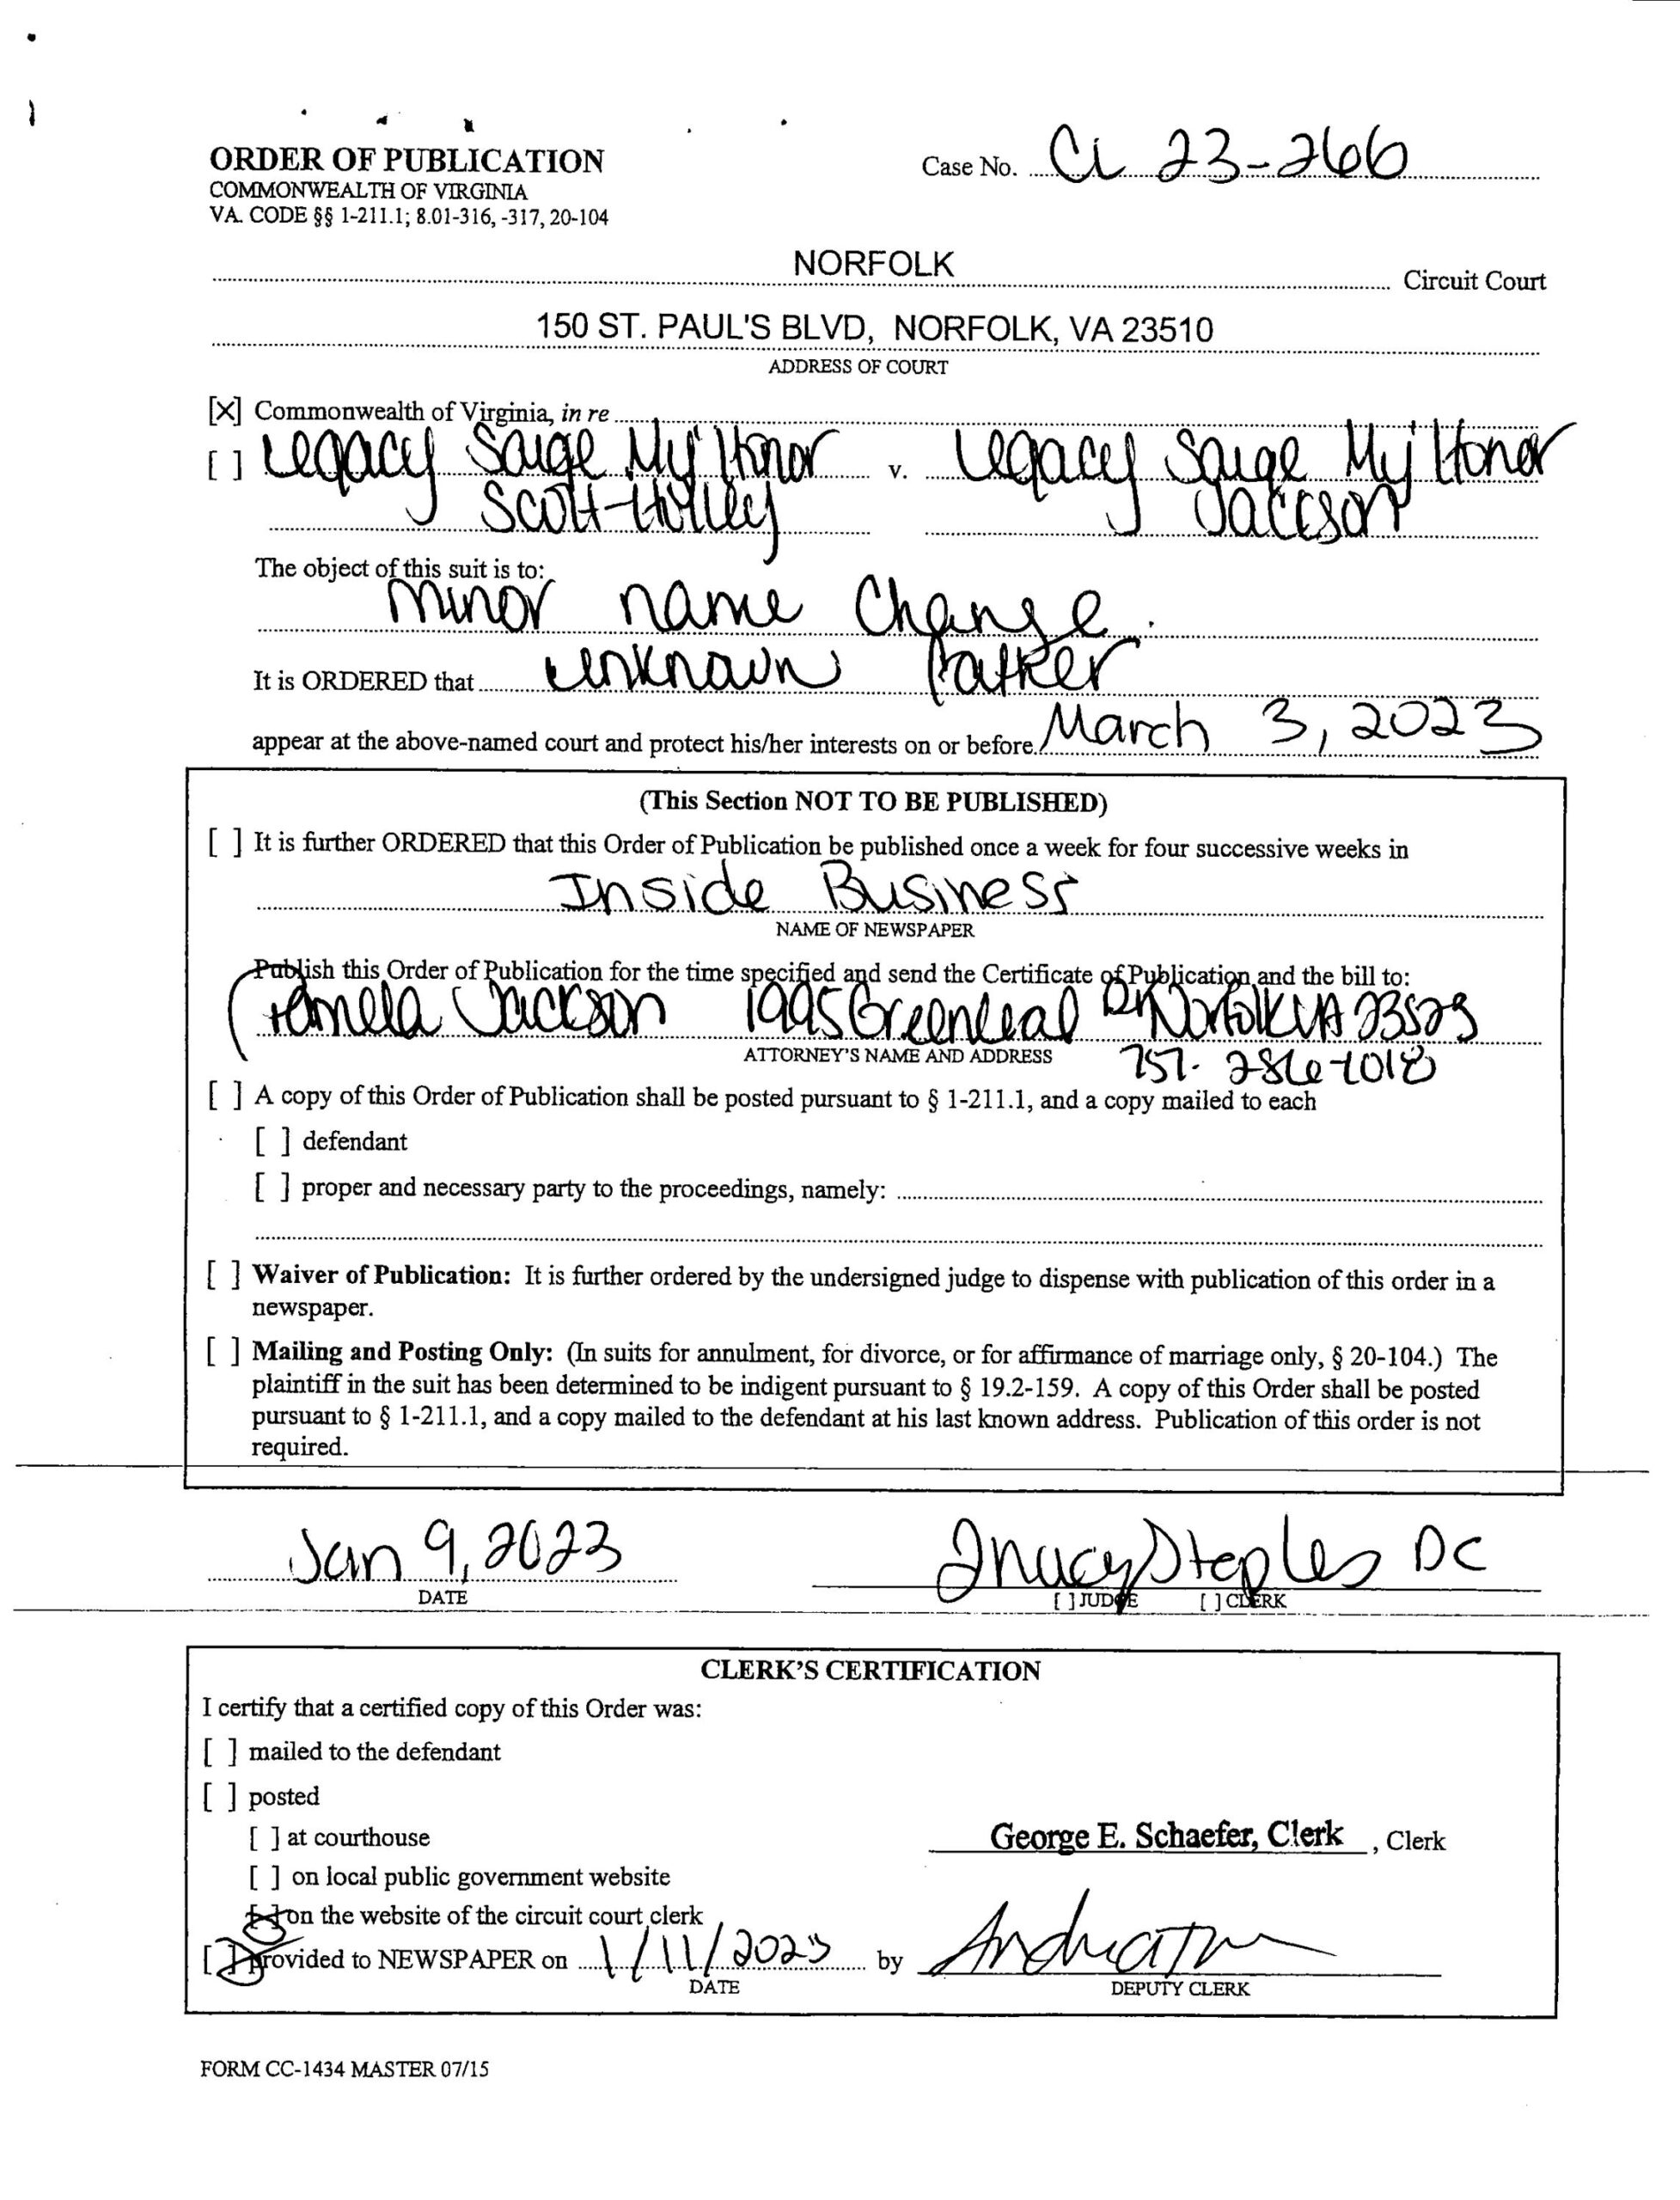 ORDER OF PUBLICATION
COMMONWEALTH OF VIRGINIA
VA. CODE §§ 1-211.1; 8.01-316, -317, 20-104
Case No. CL 23-266
NORFOLK Circuit Court
150 ST. PAUL'S BLVD, NORFOLK, VA 23510
ADDRESS OF COURT
[X] Commonwealth of Virginia, in re
[ ] Legacy Saige My'Honor v. Legacy Saige My'Honor
Scott-Holley Jackson
The object of this suit is to:
minor name Change.
It is ORDERED that unknown father
appear at the above-named court and protect his/her interests on or before March 3, 2023
(This Section NOT TO BE PUBLISHED)
[ ] It is further ORDERED that this Order of Publication be published once a week for four successive weeks in
Inside Business
NAME OF NEWSPAPER
Publish this Order of Publication for the time specified and send the Certificate of Publication and the bill to:
Pamela Jackson 1995 Greenleaf DR Norfolk VA 23523
ATTORNEY'S NAME AND ADDRESS 757-
[ ] A copy of this Order of Publication shall be posted pursuant to § 1-211.1, and a copy mailed to each
[ ] defendant
[ ] proper and necessary party to the proceedings, namely:
[ ] Waiver of Publication: It is further ordered by the undersigned judge to dispense with publication of this order in a
newspaper.
[ ] Mailing and Posting Only: (In suits for annulment, for divorce, or for affirmance of marriage only, § 20-104.) The
plaintiff in the suit has been determined to be indigent pursuant to § 19.2-159. A copy of this Order shall be posted
pursuant to § 1-211.1, and a copy mailed to the defendant at his last known address. Publication of this order is not
required.
Jan 9, 2023 Tracy Steples DC
DATE [ ] JUDGE [ ] CLERK
CLERK'S CERTIFICATION
I certify that a certified copy of this Order was:
[ ] mailed to the defendant
[ ] posted
[ ] at courthouse
George E. Schaefer, Clerk, Clerk
[ ] on local public government website
[ ] on the website of the circuit court clerk
[ ] Provided to NEWSPAPER on 1/11/2023 by
DATE DEPUTY CLERK
FORM CC-1434 MASTER 07/15